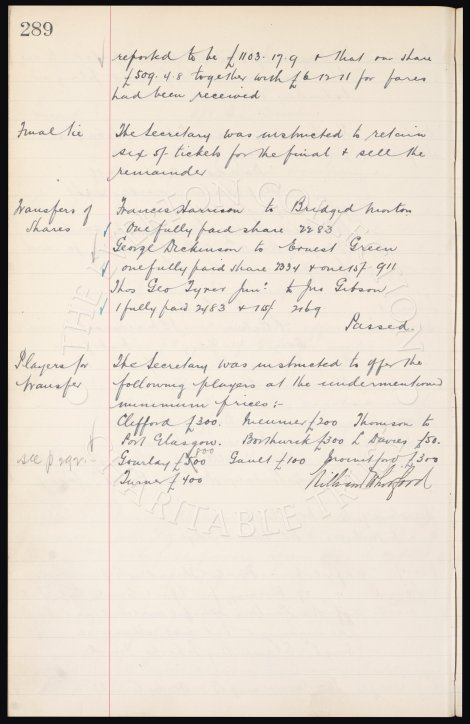 289
reported to be £1103-17-9 & that our share
£509.4.8 together with £6-12-11 for fares
had been received
Final tie
The Secretary was instructed to retain
six 5/- tickets for the final & sell the
remainder
Transfers of
Shares
Francis Harrison to Bridged Morton
One fully paid share 2283
George Dickinson to Ernest Green
one fully paid share 2334 & one 15/- 911
Thos Geo Tyrer Junr to Jno Gibson
1 fully paid 2483 & 1 15/- 2169
Passed.
Players for
transfer
The Secretary was instructed to offer the
following players at the undermentioned
minimum prices:-
Clifford £300. Meunier £200 Thomson to
Port Glasgow. Borthwick £300 L Davies £50.
see p 292
800
Gourlay £500 Gault £100 £300
Turner £400
THE EVERTON COLLECTION
CHARITABLE TRUST